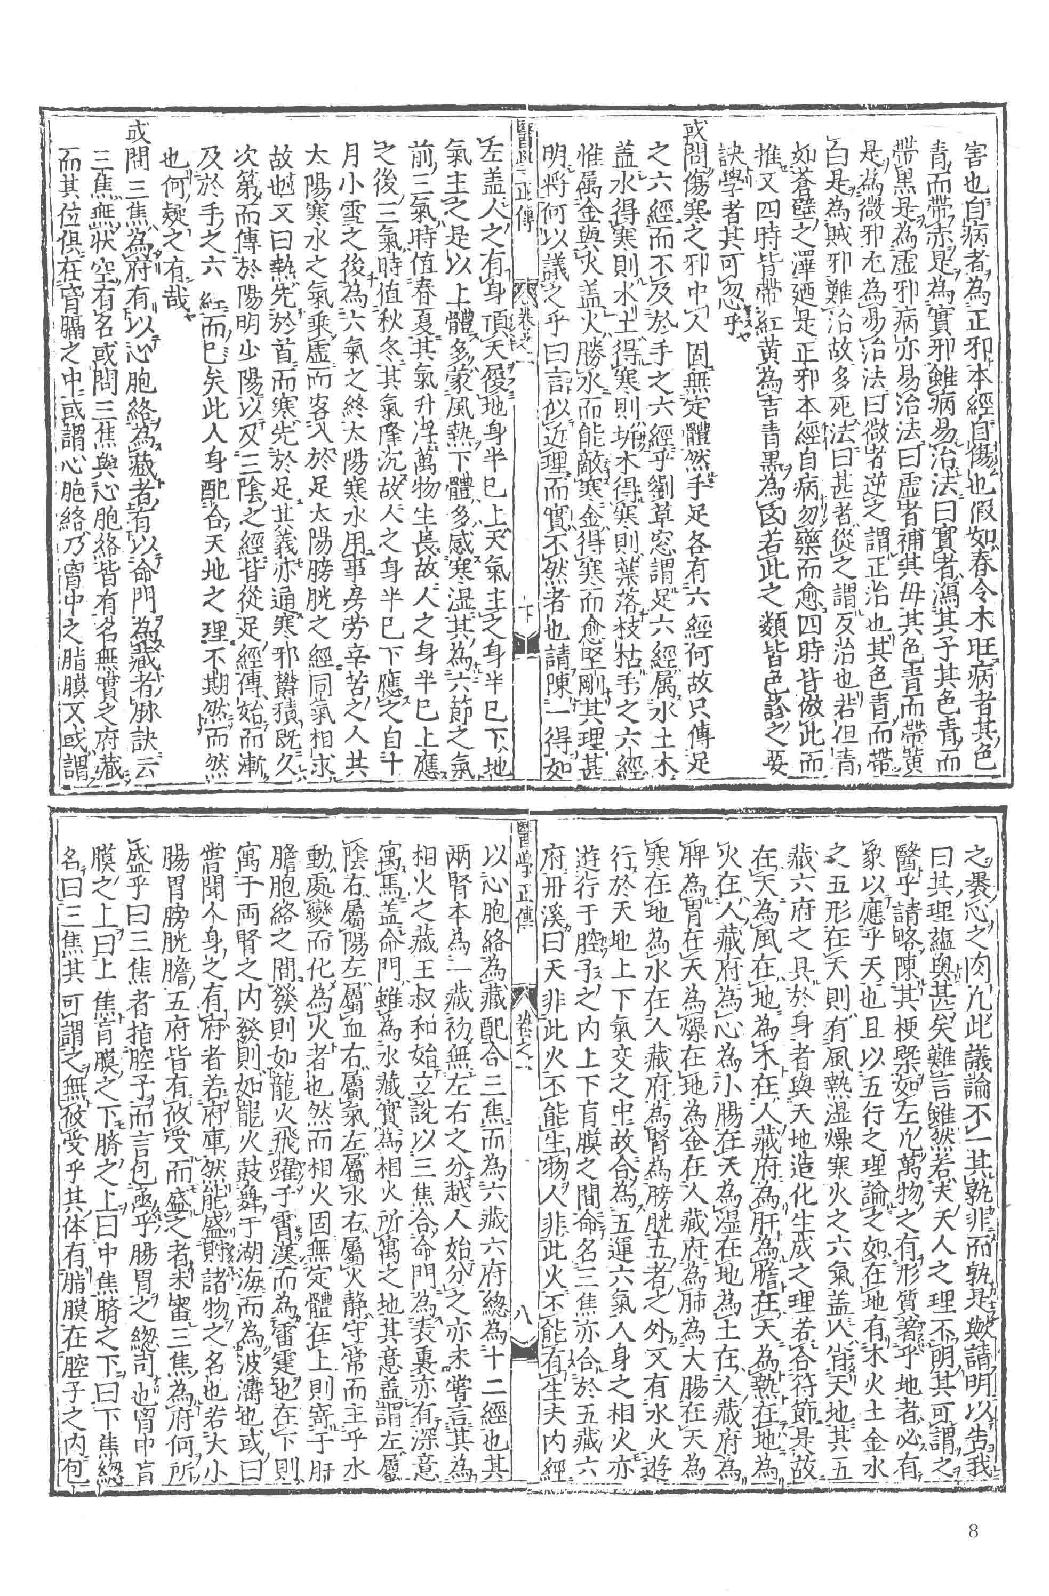 害也自病者為正邪本經自傷也假如春令木旺病者其色
青而帶赤是為實邪雖病易治法曰實者瀉其子其色青而
帶黑是為虛邪病亦易治法曰虛者補其毋其色青而帶黃
是為微邪尤為易治法曰微者逆之謂正治也其色青而帶
白是為賊邪難治故多死法曰甚者從之謂反治也若但青
如蒼璧之澤廼是正邪本經自病勿藥而愈四時皆倣此而
推又四時皆帶紅黃為吉青黑為凶若此之類皆色診之要
訣學者其可忽乎
或問傷寒之邪中人固無定體然手足各有六經何故只傳足
之六經而不及於手之六經乎劉草窓謂足六經属水土木
蓋水得寒則氷土得寒則坼木得寒則葉落枝枯手之六經
惟属金與火蓋火勝水而能敵寒金得寒而愈堅剛其理甚
明將何以議之乎曰言似近理而實不然者也請陳一得如
醫學正傳 卷之一
左蓋人之有身頂天履地身半已上天氣主之身半已下地
氣主之是以上體多蒙風熱下體多感寒湿其為六節之氣
前三氣時值春夏其氣升浮萬物生長故人之身半已上應
之後三氣時值秋冬其氣降沉故人之身半已下應之自十
月小雪之後為六氣之終太陽寒水用事房劳辛苦之人其
太陽寒水之氣乘虛而客入於足太陽膀胱之經同氣相求
故也又曰熱先於首而寒先於足其義亦通寒邪欝積既久
次第而傳於陽明少陽以及三陰之經皆從足經傳始而漸
及於手之六經而已矣此人身配合天地之理不期然而然
也何疑之有哉
或問三焦為府有以心胞絡為藏者有以命門為藏者脉訣云
三焦無狀空有名或問三焦與心胞絡皆有名無實之府藏
而其位俱在胷膈之中或謂心胞絡乃胷中之脂膜又或謂
之褁心之肉凡此議論不一其孰非而孰是歟請明以告我
曰其理蘊奥甚矣難言雖然若夫天人之理不明其可謂之
醫乎請略陳其梗槩如左凢萬物之有形質著乎地者必有
象以應乎天也且以五行之理論之如在地有木火土金水
之五形在天則有風熱湿燥寒火之六氣蓋人肖天地其五
藏六府之具於身者與天地造化生成之理若合符節是故
在天為風在地為木在人藏府為肝為膽在天為熱在地為
火在人藏府為心為小腸在天為湿在地為土在人藏府為
脾為胃在天為燥在地為金在人藏府為肺為大腸在天為
寒在地為水在人藏府為腎為膀胱五者之外又有水火遊
行於天地上下氣交之中故合為五運六氣人身之相火亦
遊行于腔子之内上下肓膜之間命名三焦亦合於五藏六
府丹溪曰天非此火不能生物人非此火不能有生夫内經
醫學正傳 卷之一 八
以心胞絡為藏配合三焦而為六藏六府總為十二經也其
兩腎本為一藏初無左右之分越人始分之亦未嘗言其為
相火之藏王叔和始立說以三焦合命門為表裏亦有深意
寓焉蓋命門雖為水藏實為相火所寓之地其意蓋謂左屬
陰右屬陽左屬血右屬氣左屬水右屬火静守常而主乎水
動處變而化為火者也然而相火固無定體在上則寄于肝
膽胞絡之間發則如龍火飛躍于霄漢而為雷霆也在下則
寓于兩腎之内發則如龍火鼓舞于湖海而為波濤也或曰
嘗聞人身之有府者若府庫然能盛貯諸物之名也若大小
腸胃膀胱膽五府皆有攸受而盛之者未審三焦為府何所
盛乎曰三焦者指腔子而言包函乎腸胃之總司也胷中肓
膜之上曰上焦肓膜之下臍之上曰中焦臍之下曰下焦總
名曰三焦其可謂之無攸受乎其体有脂膜在腔子之内包
8